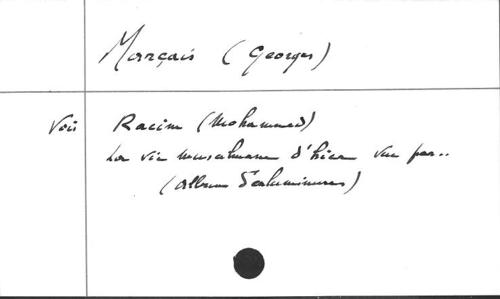 Marçais (Georges)
Voir Racim (Mohammed)
La vie musulmane d'hier vue par..
(Album d'enluminures)